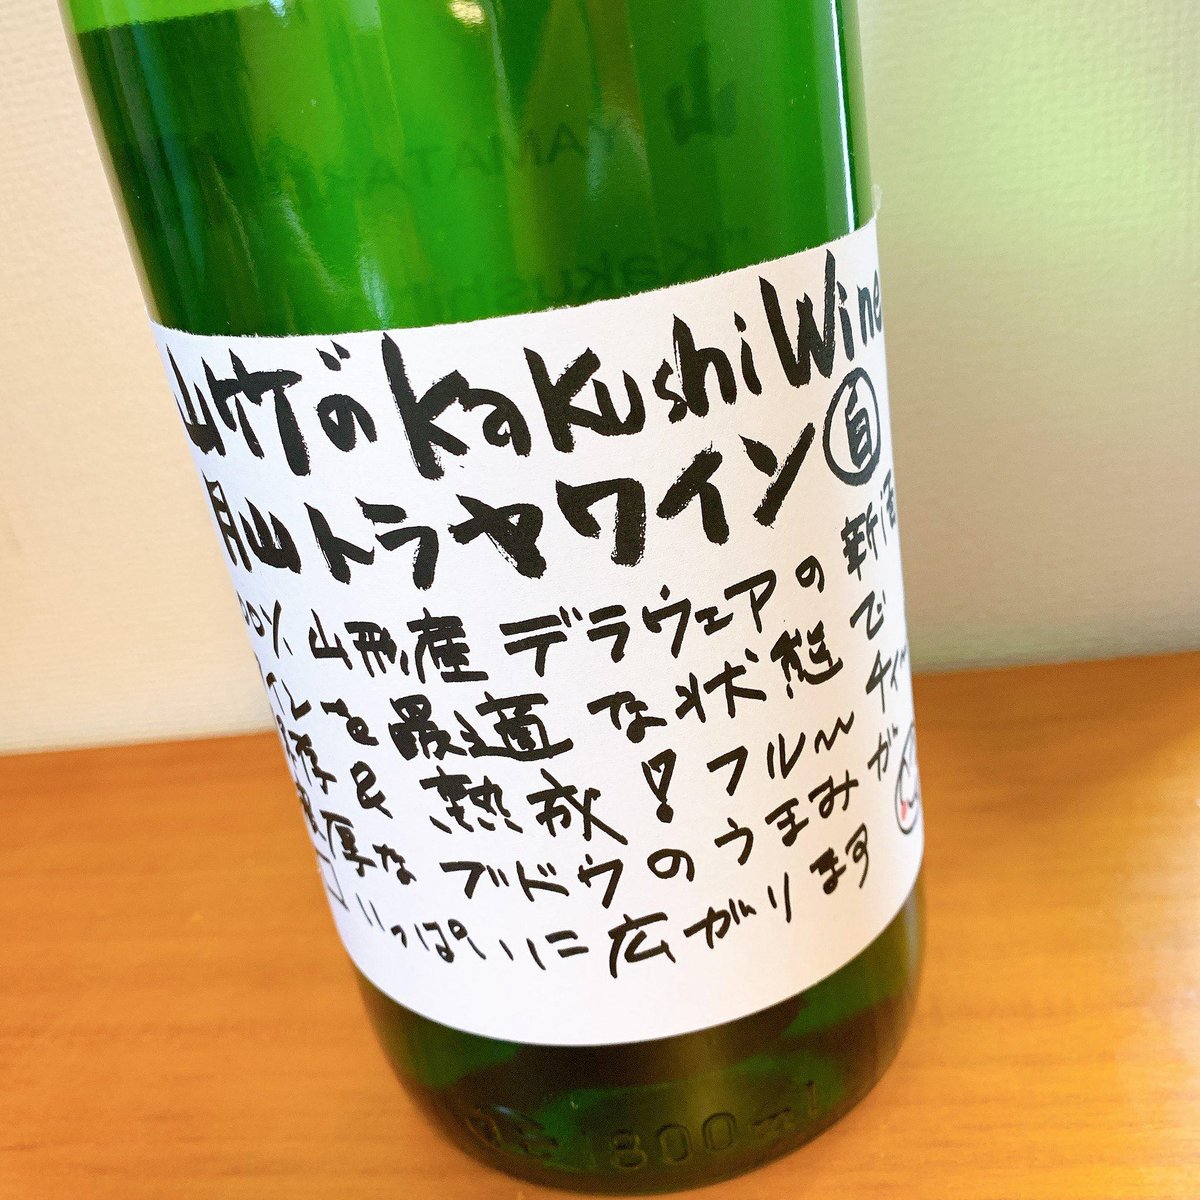 山 YAMATA
"Kakushi
山竹のKakushiWine
月山トラヤワイン
00% 山形産デラウェアの新酒
インを最適な状態で
存&熟成!フル〜ティ〜
厚なブドウのうまみが
口いっぱいに広がります
1800ml